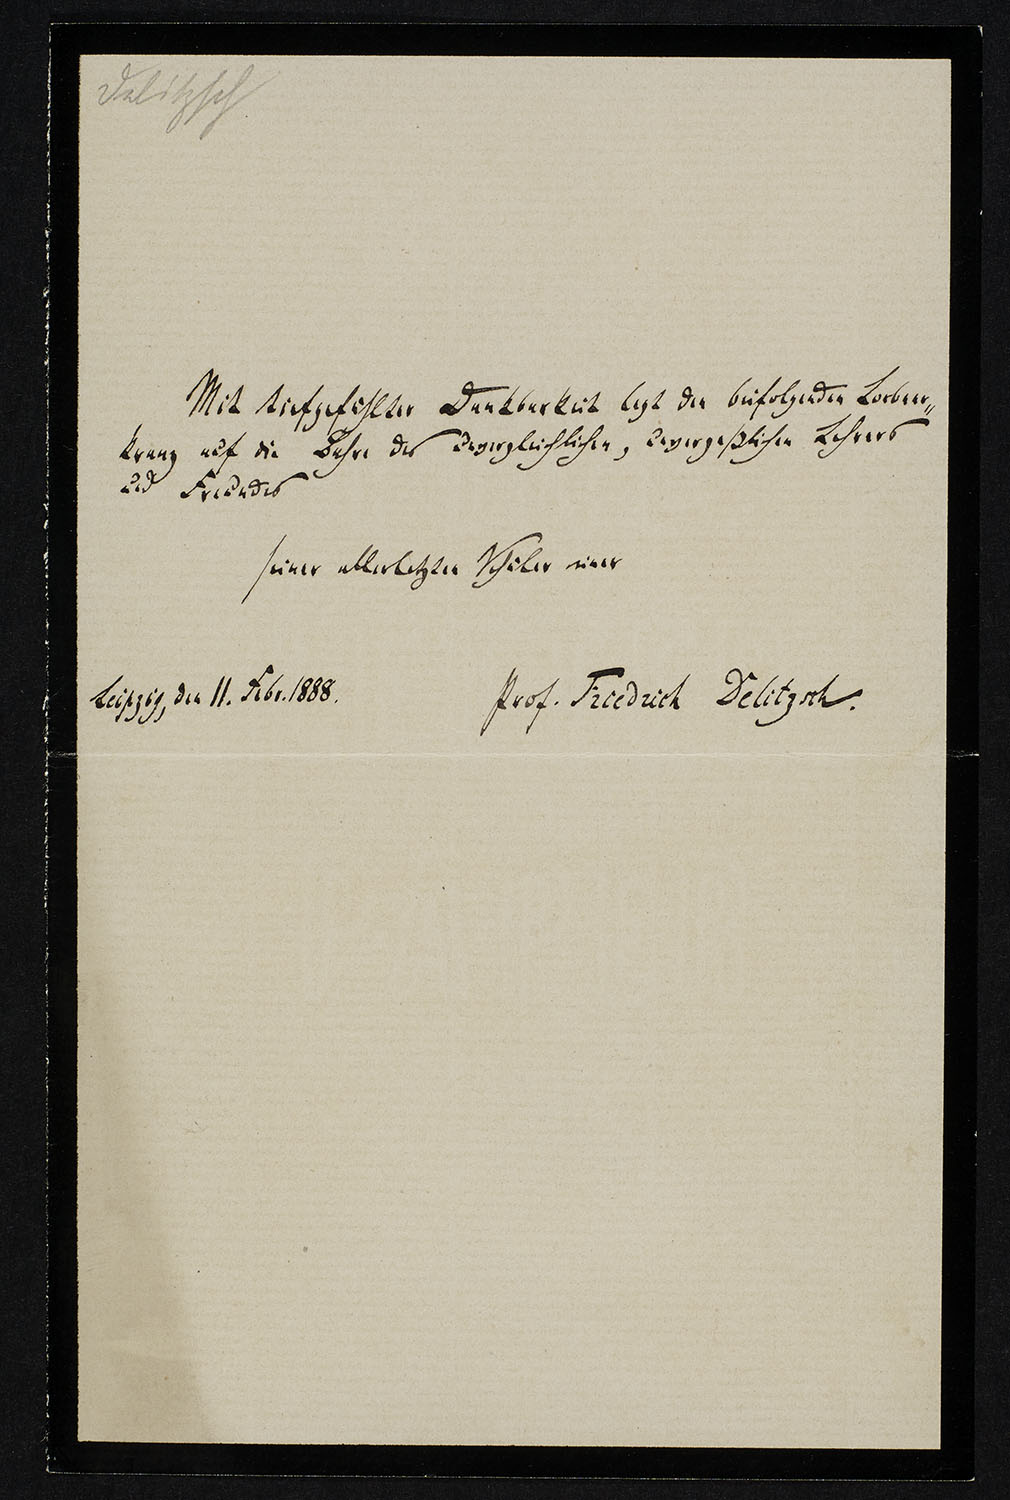 Delitzsch
Mit tiefgefühlter Dankbarkeit legt den beifolgenden Lorbeer„
kranz auf die Bahre des unvergleichlichen, unvergeßlichen Lehrers
und Freundes
seiner allerletzten Schüler einer
Leipzig, den 11. Febr. 1888.
Prof. Friedrich Delitzsch.